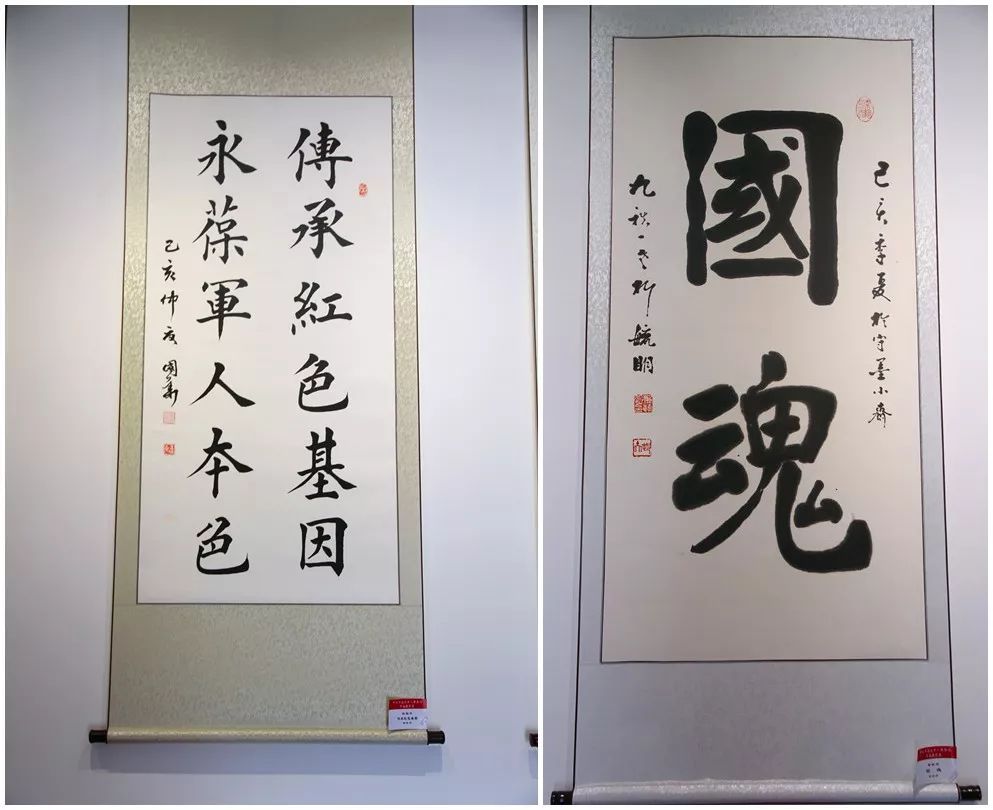 傳承紅色基因
永葆軍人本色
己亥仲夏
國魂
己亥季夏於守墨小齋
九秩一老柳毓明